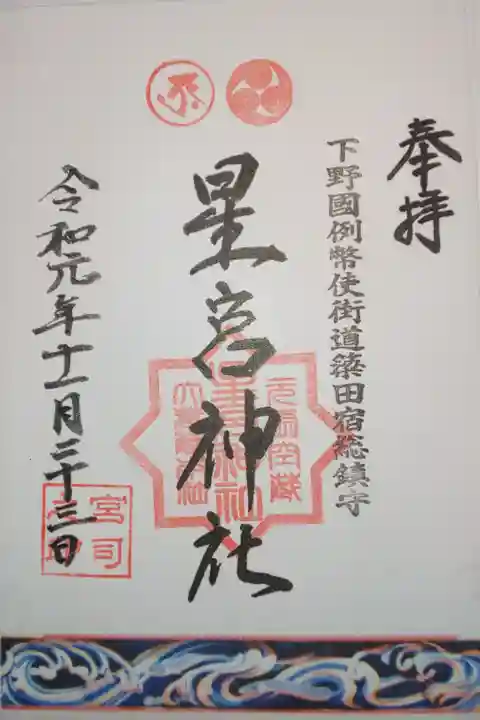 奉拝
下野國例幣使街道簗田宿総鎮守
星宮神社
令和元年十一月二十三日
宮司